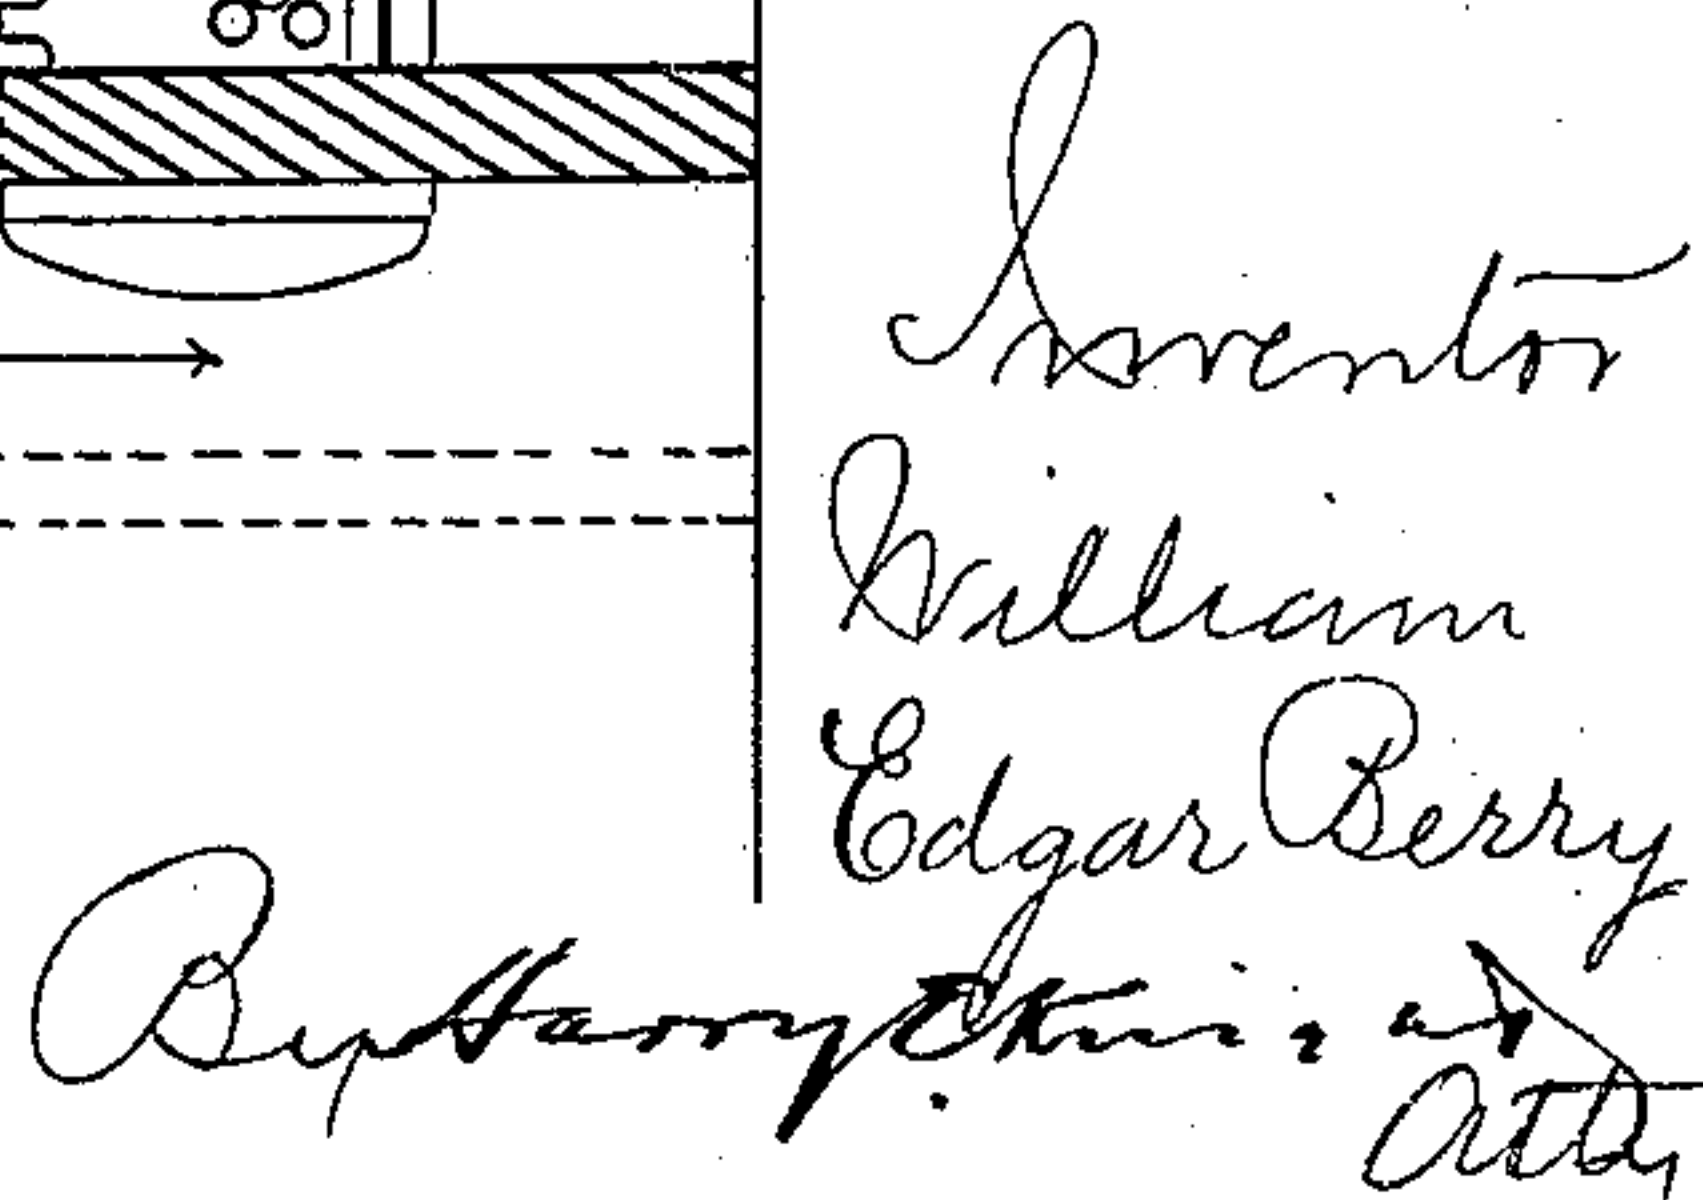 Inventor
William
Edgar Berry
By Harry
Atty